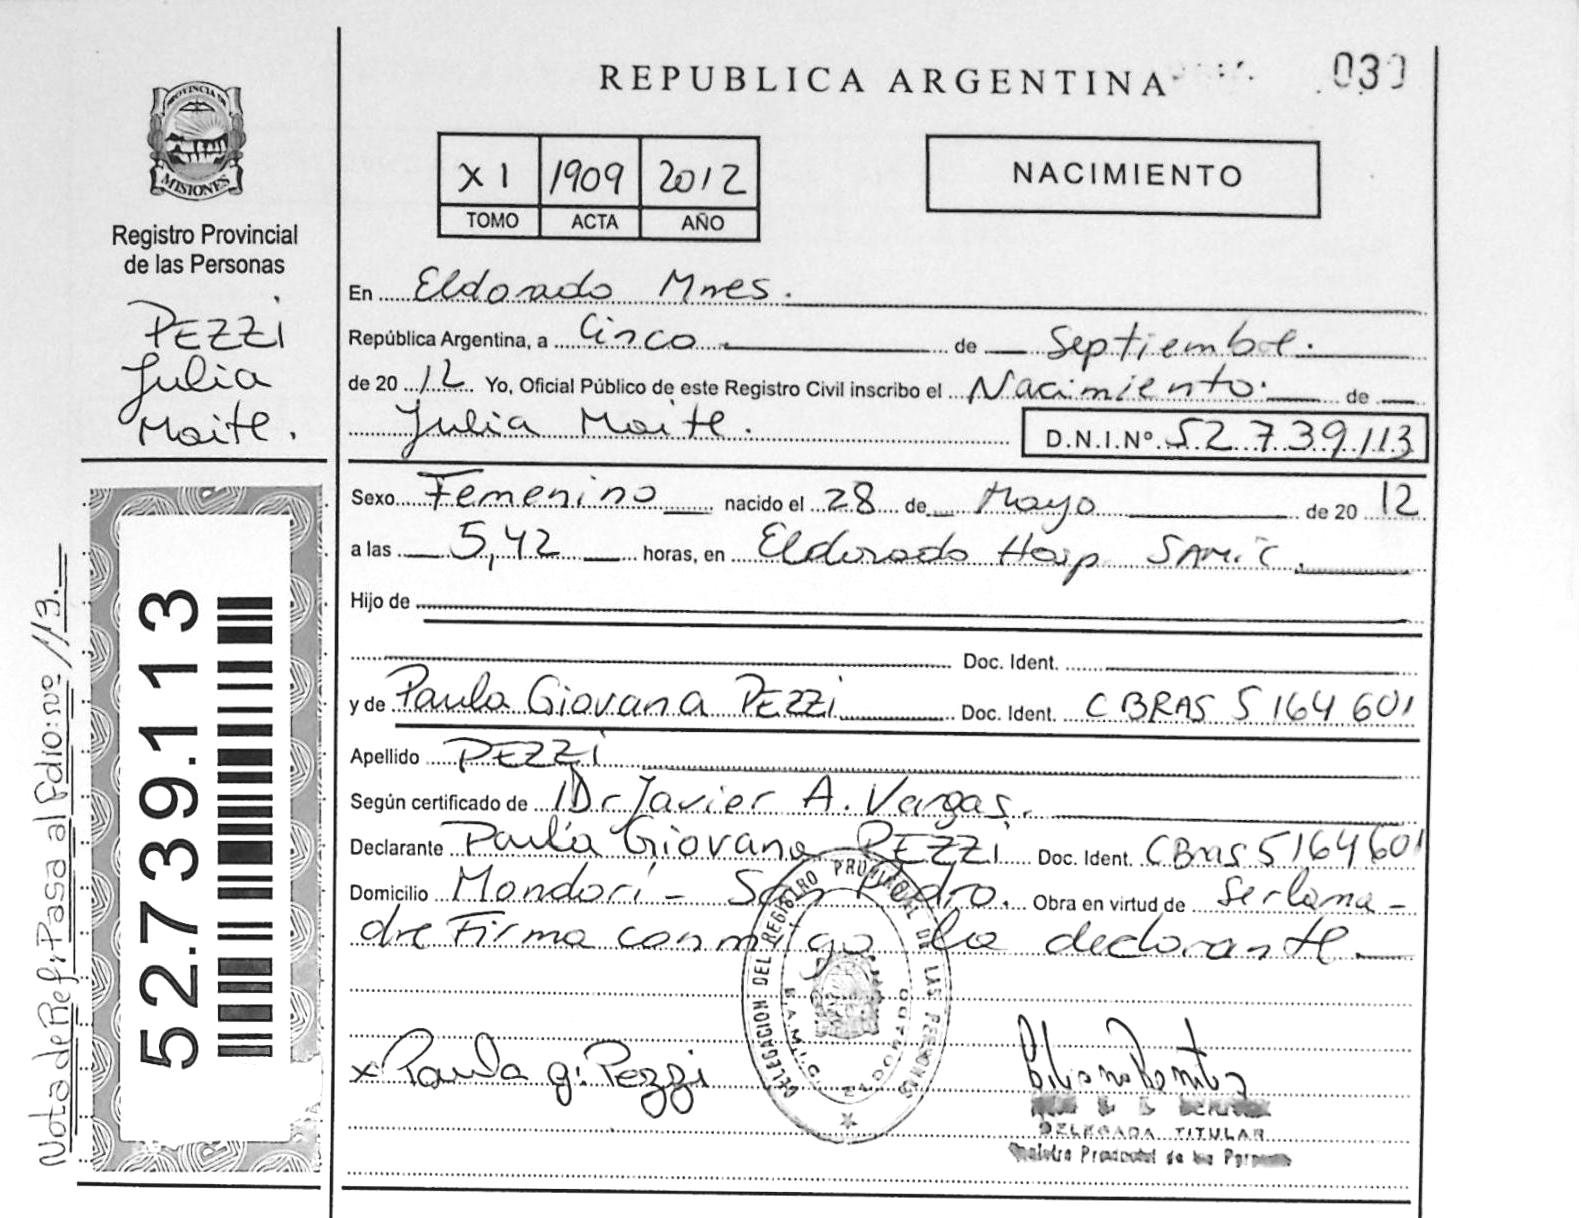 REPUBLICA ARGENTINA
030
PROVINCIA DE
MISIONES
Registro Provincial
de las Personas
PEZZI
Julia
Maite.
XI 1909 2012
TOMO ACTA AÑO
NACIMIENTO
En Eldorado Mnes.
República Argentina, a Cinco de Septiembre.
de 20 12 Yo, Oficial Público de este Registro Civil inscribo el Nacimiento. de
Julia Maite. D.N.I.Nº 52.739.113
Sexo Femenino nacido el 28 de Mayo de 20 12
a las 5,42 horas, en Eldorado Hosp SAMIC.
Hijo de
Doc. Ident.
y de Paula Giovana PEZZI Doc. Ident. CBRAS 5164601
Apellido PEZZI
Según certificado de Dr Javier A. Vargas.
Declarante Paula Giovana PEZZI Doc. Ident. CBras 5164601
Domicilio Mondorí - San Pedro. Obra en virtud de Ser la ma-
dre Firma conmigo la declarante.
x Paula g. Pezzi
DELEGACION DEL REGISTRO PROVINCIAL DE LAS PERSONAS
ELDORADO
DELEGADA TITULAR
Registro Provincial de las Personas
52.739.113
Nota de Ref: Pasa al Folio: nº 113.